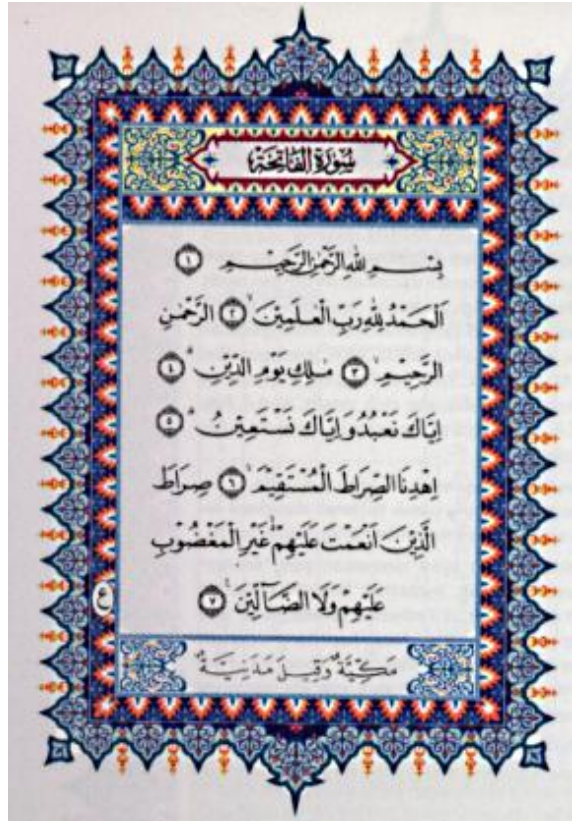 سُورَةُ الْفَاتِحَةِ
بِسْمِ اللّٰهِ الرَّحْمٰنِ الرَّحِيْمِ ۝١
اَلْحَمْدُ لِلّٰهِ رَبِّ الْعٰلَمِيْنَۙ ۝٢ الرَّحْمٰنِ
الرَّحِيْمِۙ ۝٣ مٰلِكِ يَوْمِ الدِّيْنِۗ ۝٤
اِيَّاكَ نَعْبُدُ وَاِيَّاكَ نَسْتَعِيْنُۗ ۝٥
اِهْدِنَا الصِّرَاطَ الْمُسْتَقِيْمَۙ ۝٦ صِرَاطَ
الَّذِيْنَ اَنْعَمْتَ عَلَيْهِمْۙ غَيْرِ الْمَغْضُوْبِ
عَلَيْهِمْ وَلَا الضَّاۤلِّيْنَۙ ۝٧
ع
مَكِّيَّةٌ وَقِيْلَ مَدَنِيَّةٌ